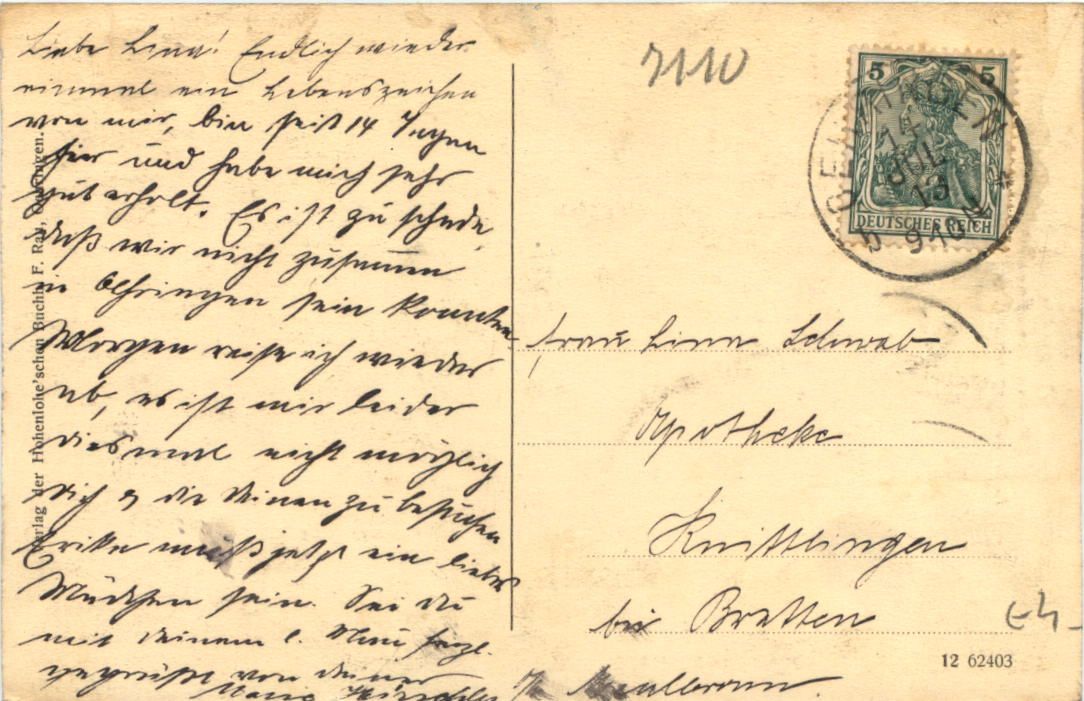 Liebe Lina! Endlich wieder
einmal ein Lebenszeichen
von mir, bin seit 14 Tagen
hier und habe mich sehr
gut erholt. Es ist zu schade,
daß wir nicht zusammen
in Öhringen sein konnten.
Morgen reise ich wieder
ab, es ist mir leider
diesmal nicht möglich
dich & die Deinen zu besuchen
Erika muß jetzt ein liebes
Mädchen sein. Sei du
mit deinem l. Mann herzl.
gegrüßt von deiner
Verlag der Hohenlohe'schen Buchh. F. Rau, Öhringen.
7110
5 5
DEUTSCHES REICH
14
JUL
13
9-10
Frau Lina Schwab
Apotheke
Knittlingen
bei Bretten
Maulbronn.
12 62403